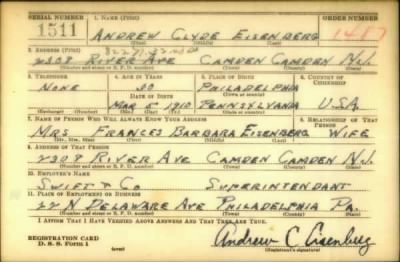 SERIAL NUMBER 1. NAME (Print) ORDER NUMBER
1511 ANDREW CLYDE EISENBERG 1487
(First) (Middle) (Last)
2. ADDRESS (Print)
2308 RIVER AVE CAMDEN CAMDEN N.J.
(Number and street or R. F. D. number) (Town) (County) (State)
3. TELEPHONE 4. AGE IN YEARS 5. PLACE OF BIRTH 6. COUNTRY OF CITIZENSHIP
NONE 30 PHILADELPHIA
DATE OF BIRTH (Town or county)
MAR 5 1910 PENNSYLVANIA U.S.A.
(Exchange) (Number) (Mo.) (Day) (Yr.) (State or country)
7. NAME OF PERSON WHO WILL ALWAYS KNOW YOUR ADDRESS 8. RELATIONSHIP OF THAT PERSON
MRS. FRANCES BARBARA EISENBERG WIFE
(Mr., Mrs., Miss) (First) (Middle) (Last)
9. ADDRESS OF THAT PERSON
2308 RIVER AVE CAMDEN CAMDEN N.J.
(Number and street or R. F. D. number) (Town) (County) (State)
10. EMPLOYER'S NAME
SWIFT & CO SUPERINTENDANT
11. PLACE OF EMPLOYMENT OR BUSINESS
22 N DELAWARE AVE PHILADELPHIA PA.
(Number and street or R. F. D. number) (Town) (County) (State)
I AFFIRM THAT I HAVE VERIFIED ABOVE ANSWERS AND THAT THEY ARE TRUE.
REGISTRATION CARD
D. S. S. Form 1 (over) Andrew C Eisenberg
(Signature)